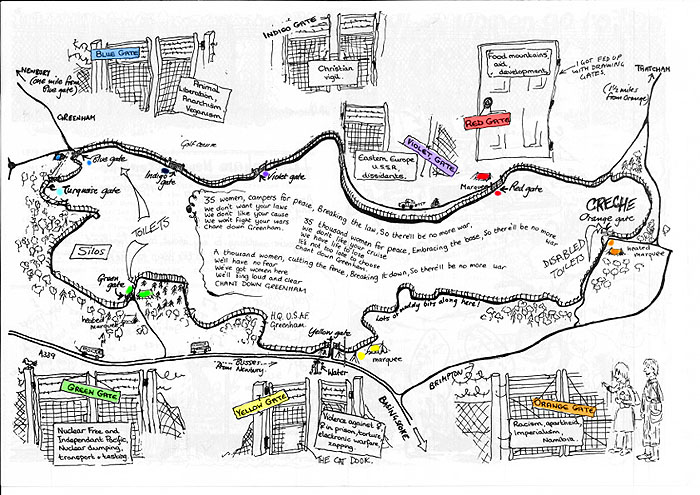 INDIGO GATE
BLUE GATE
Animal
liberation,
Anarchism
Veganism.
Christian
vigil.
Food mountains,
aid,
development.
I GOT FED UP
WITH DRAWING
GATES.
THATCHAM
(1½ miles
from Orange)
NEWBURY
(one mile from
Blue gate)
GREENHAM
RED GATE
VIOLET GATE
Eastern Europe
U.S.S.R.
dissidents.
Golf course
Blue gate
Indigo
gate
Violet gate
Marquee
Red gate
Turquoise gate
TOILETS
CRECHE
Orange gate
35 women, campers for peace, Breaking the law, So there'll be no more war,
We don't want your laws
We don't like your cause
We won't fight your wars
Chant down Greenham.
35 thousand women for peace, Embracing the base, So there'll be no more
war
We don't like your cruise
We've life to lose
It's not too late to choose
Chant down Greenham.
A thousand women, cutting the fence, Breaking it down, So there'll be no more war
We'll have no fear
We've got women here
We'll sing loud and clear
CHANT DOWN GREENHAM
Silos
DISABLED
TOILETS
Heated
marquee
Green
gate
Heated
marquee
H.Q. U.S.A.F.
Greenham.
Lots of muddy bits along here!
Yellow gate
marquee
A339
Busses
from Newbury.
Water
BRIMPTON
BASINGSTOKE
GREEN GATE
Nuclear Free and
Independant Pacific,
Nuclear dumping,
transport + testing.
YELLOW GATE
Violence against ♀,
♀ in prison, torture,
electronic warfare,
zapping.
THE CAT DOOK.
ORANGE GATE
Racism, apartheid,
Imperialism,
Namibia.